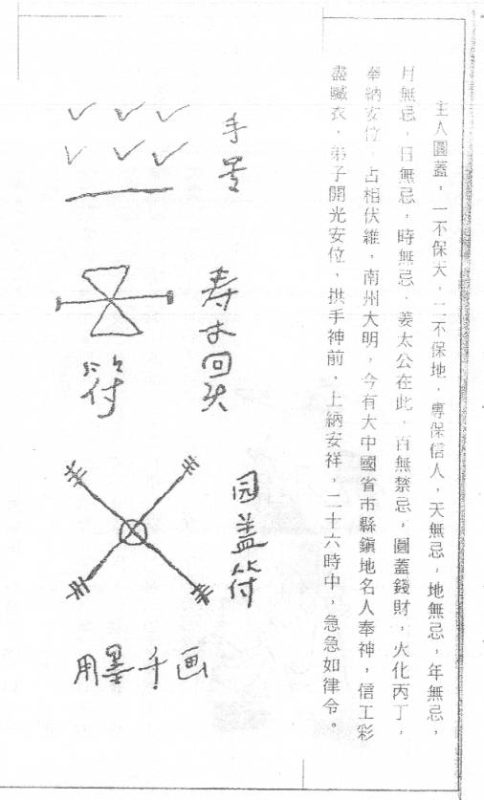 主人圓蓋，一不保天，二不保地，專保信人，天無忌，地無忌，年無忌，
月無忌，日無忌，時無忌，姜太公在此，百無禁忌，圓蓋錢財，火化丙丁，
奉納安位，占相伏維，南州大明，今有大中國省市縣鎮地名人奉神，信工彩
盡贓衣，弟子開光安位，拱手神前，上納安祥，二十六時中，急急如律令。
手号
寿回头
符
园盖符
用墨千画